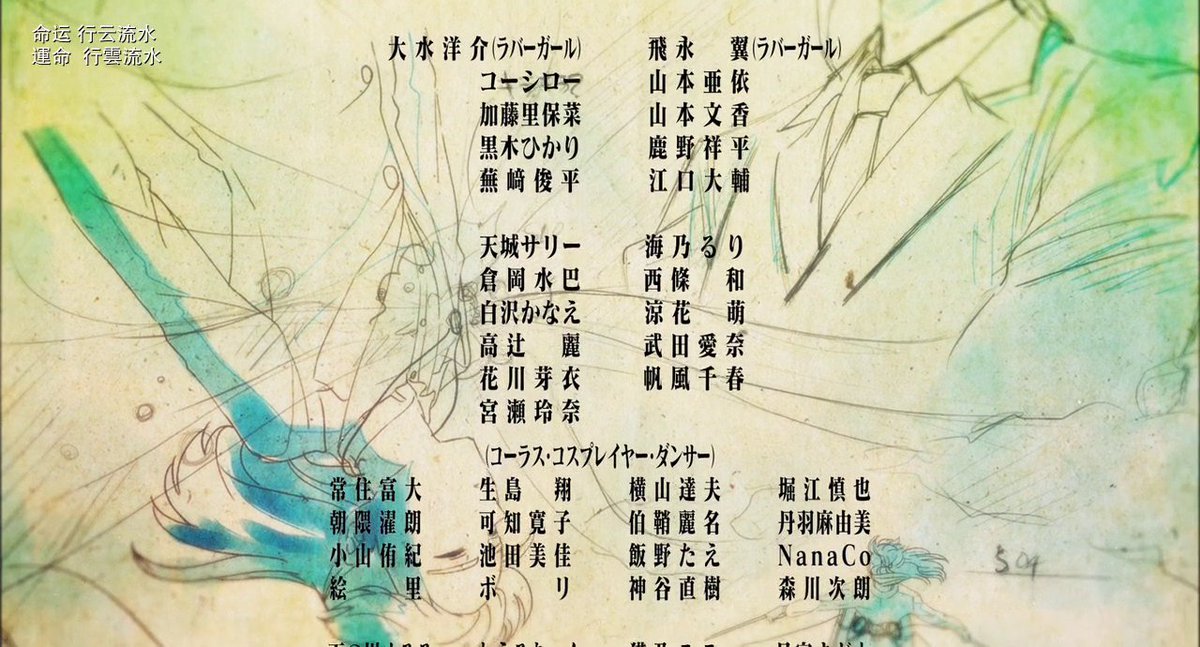 命运 行云流水
運命 行雲流水
大水洋介(ラバーガール) 飛永 翼(ラバーガール)
コーシロー 山本亜依
加藤里保菜 山本文香
黒木ひかり 鹿野祥平
蕪﨑俊平 江口大輔
天城サリー 海乃るり
倉岡水巴 西條 和
白沢かなえ 涼花 萌
高辻 麗 武田愛奈
花川芽衣 帆風千春
宮瀬玲奈
(コーラス・コスプレイヤー・ダンサー)
常住富大 生島 翔 横山達夫 堀江慎也
朝隈濯朗 可知寛子 伯鞘麗名 丹羽麻由美
小山侑紀 池田美佳 飯野たえ NanaCo
絵 里 ボ リ 神谷直樹 森川次朗
504